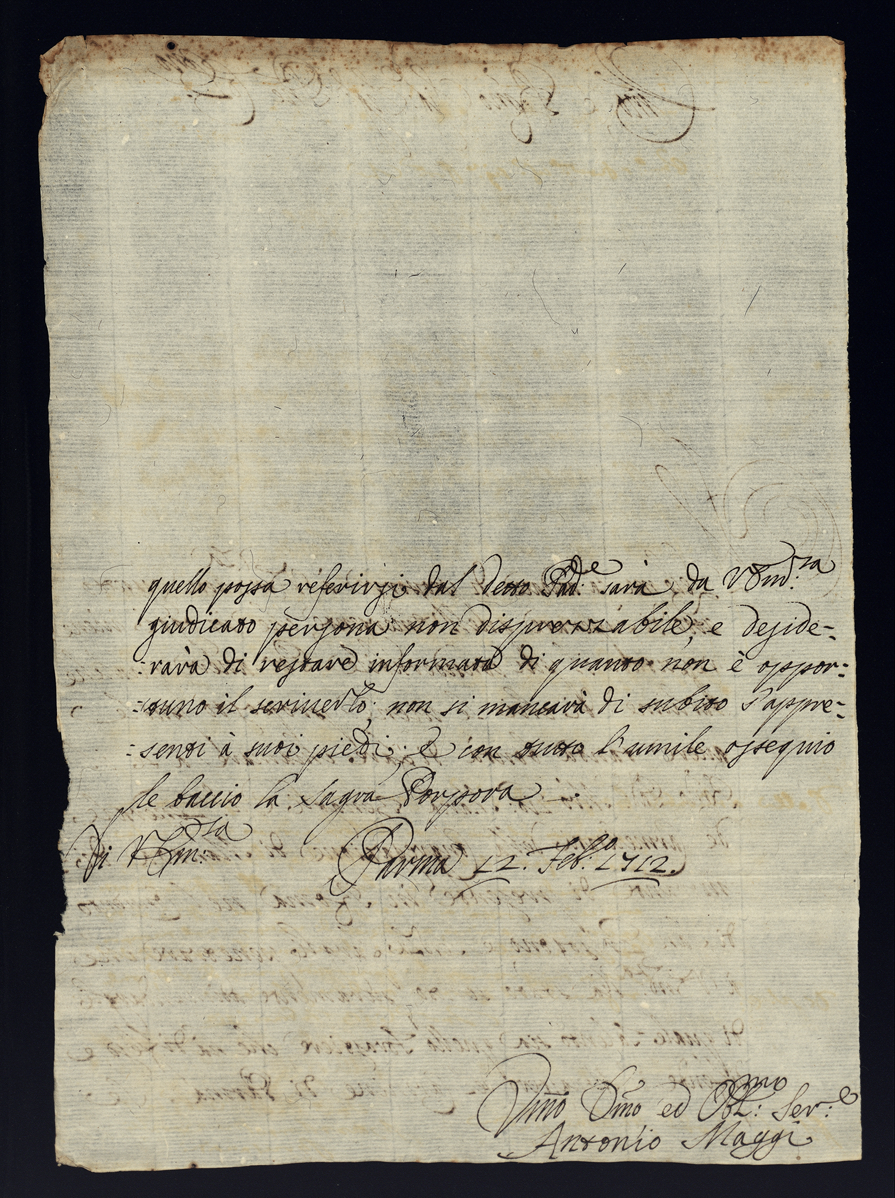 quello possa riferirsi dal detto Pad.e sarà da V Em.za
giudicato persona non disprezzabile, e deside-
-rarà di restare informata di quanto non è oppor-
-tuno il scriverlo; non si mancarà di subito s'appre-
-senti à suoi piedi, e con tutto l'umile ossequio
le baccio la Sagra Porpora
di V Em.za Parma 12. Feb.o 1712.
Umo Dmo ed Obl.mo Ser.e
Antonio Maggi